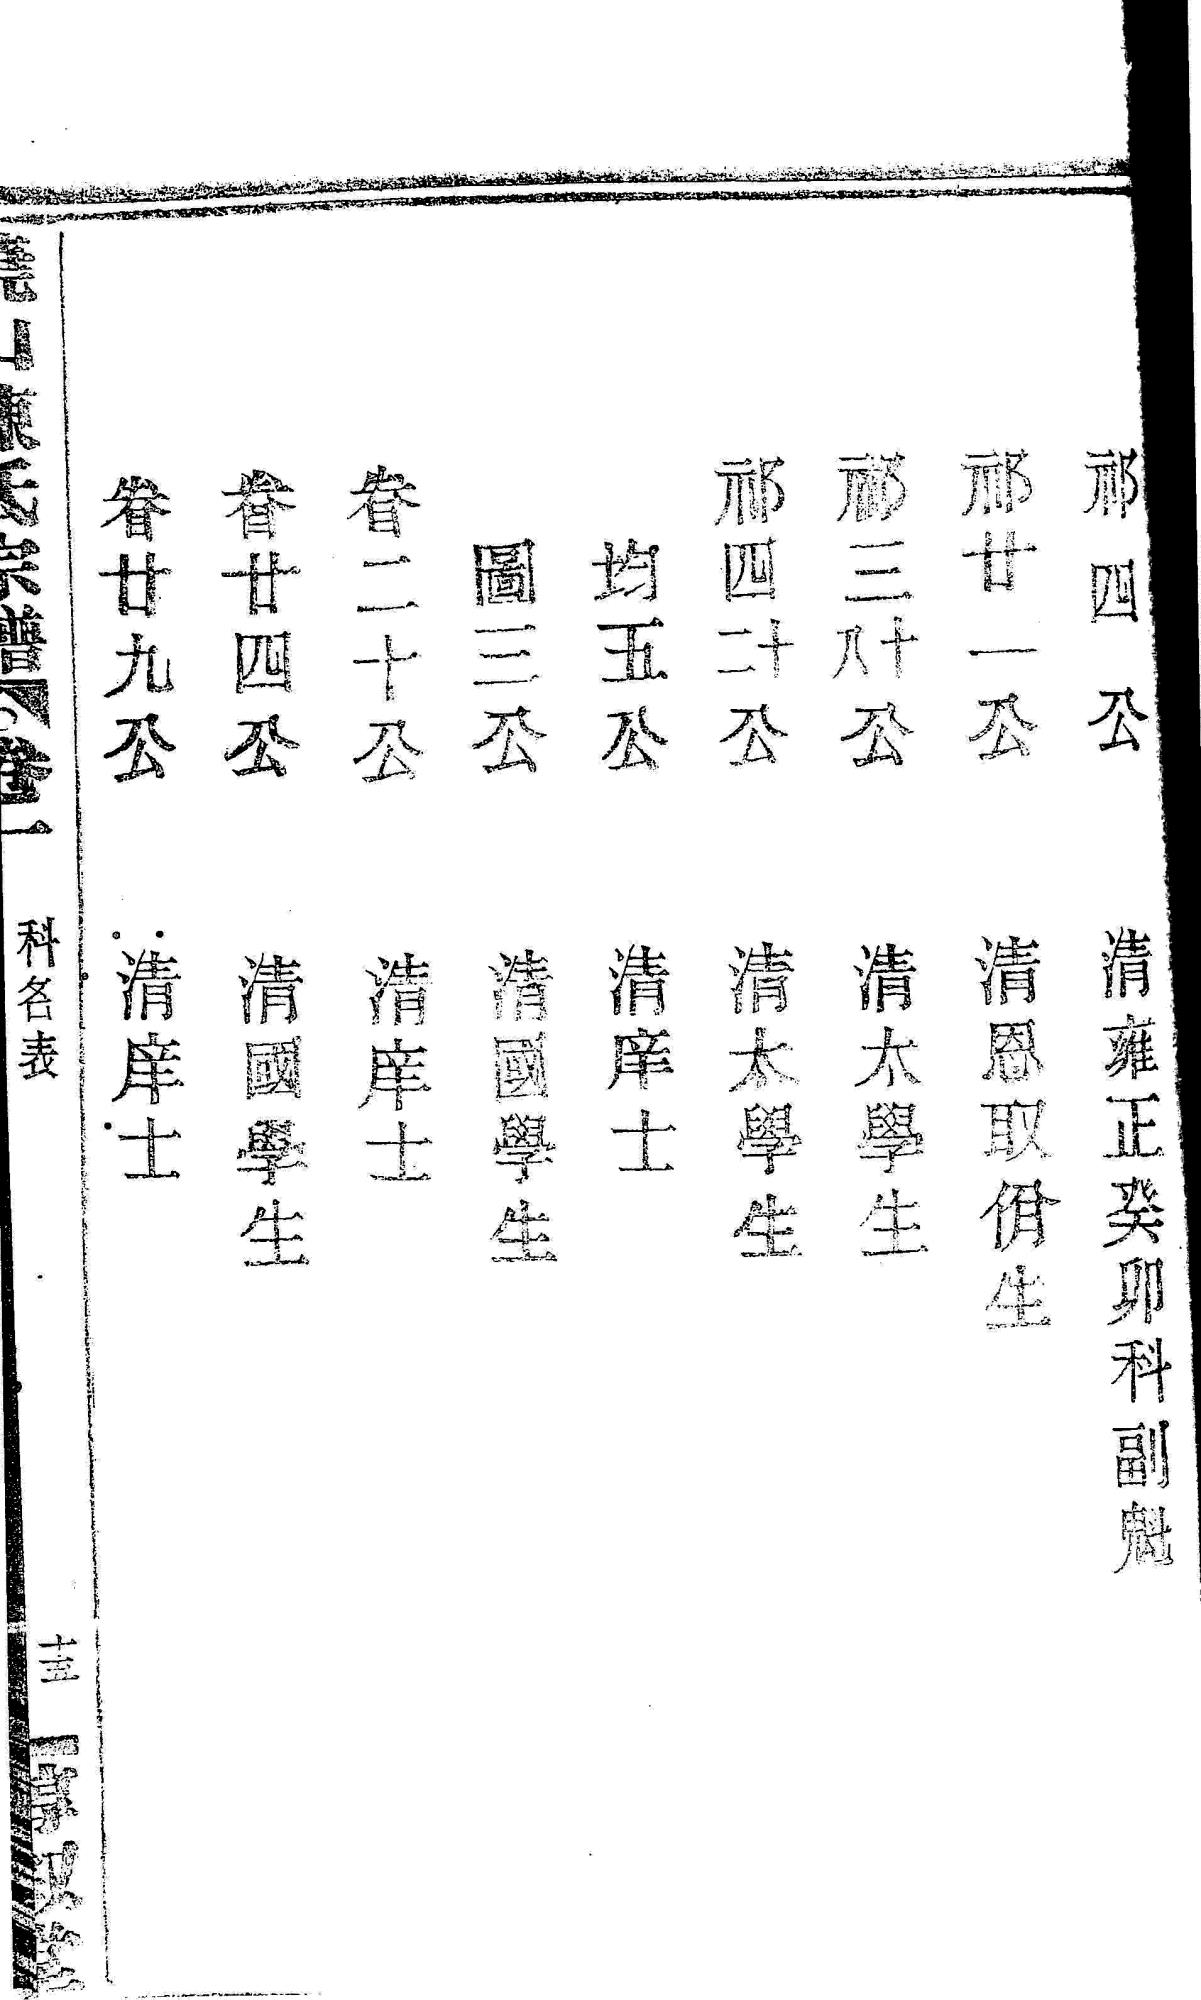 祁四公 清雍正癸卯科副魁
祁廿一公 清恩取佾生
祁三十八公 清太學生
祁四十二公 清太學生
均五公 清庠士
圖三公 清國學生
眷二十公 清庠士
眷廿四公 清國學生
眷廿九公 清庠士
氏宗譜 卷一 科名表 十三